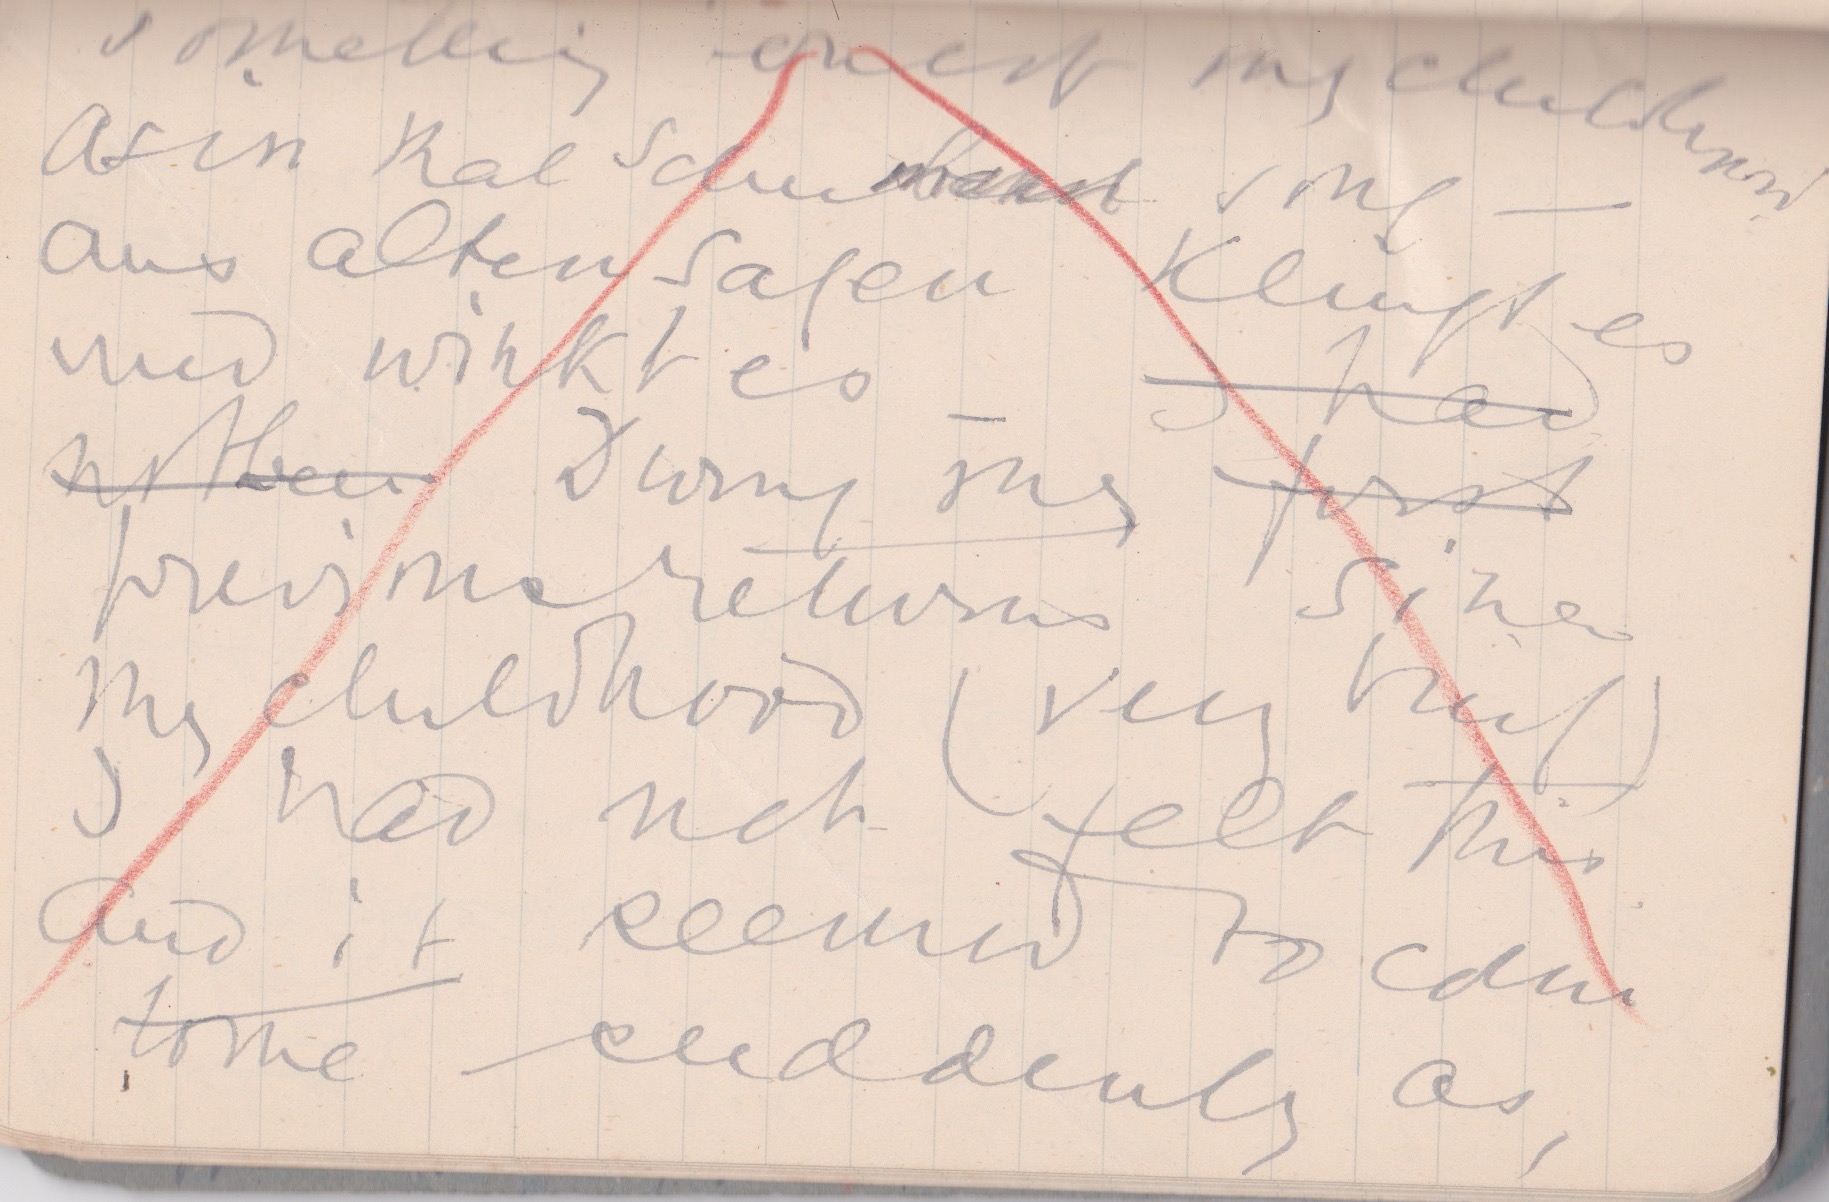 something about my childhood
as in that Schumann song —
aus alten Sagen Klingt es
und winkt es — I had
not been During my first
previous returns since
my childhood (very brief)
I had not felt this
and it seemed to come
to me suddenly as,